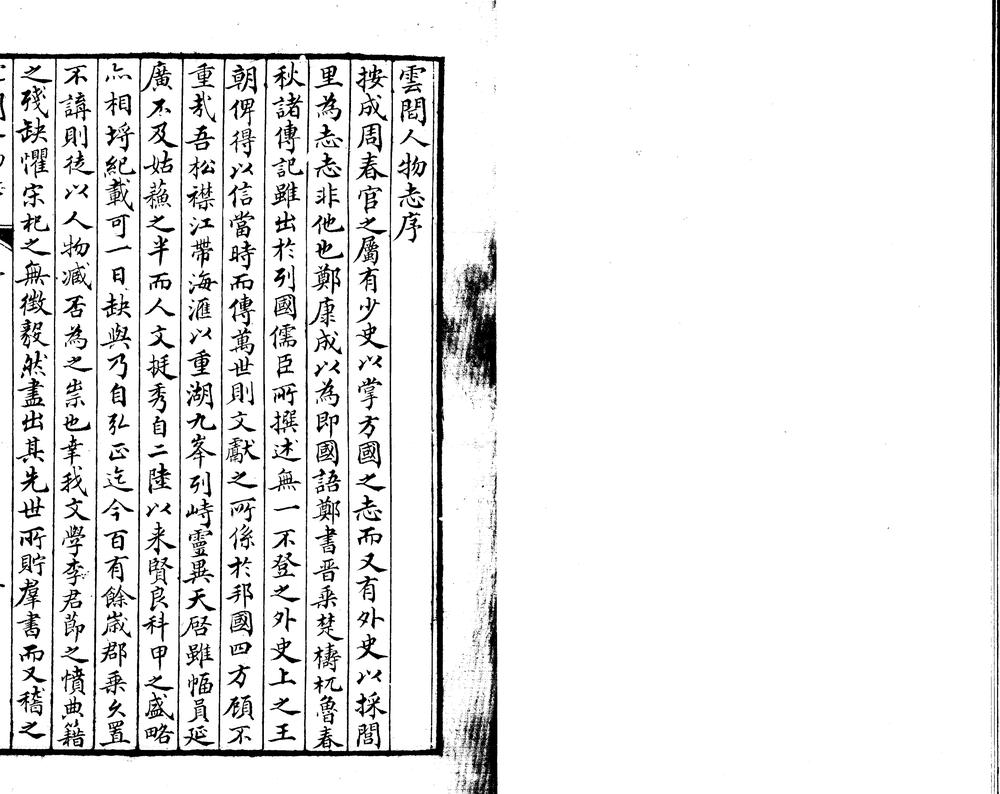 雲間人物志序
按成周春官之屬有少史以掌方國之志而又有外史以採閭
里為志志非他也鄭康成以為即國語鄭書晋乘楚檮杌魯春
秋諸傳記雖出於列國儒臣所撰述無一不登之外史上之王
朝俾得以信當時而傳萬世則文獻之所係於邦國四方顧不
重哉吾松襟江帶海滙以重湖九峯列峙靈異天啓雖幅員延
廣不及姑蘓之半而人文挺秀自二陸以来賢良科甲之盛略
亦相埒紀載可一日缺與乃自弘正迄今百有餘嵗郡乘久置
不講則徒以人物臧否為之祟也幸我文學李君節之憤典籍
之殘缺懼宋杞之無徵毅然盡出其先世所貯羣書而又稽之